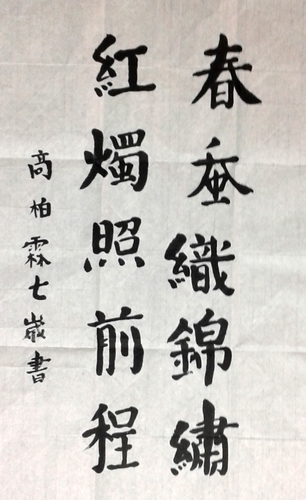 春蚕織錦繡
紅燭照前程
高柏霖七嵗書